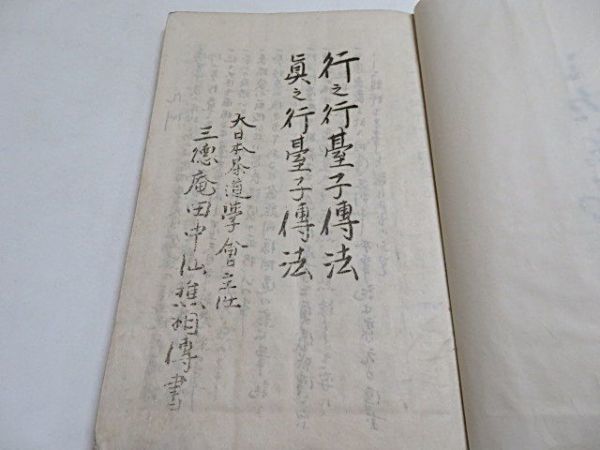 行之行臺子傳法
眞之行臺子傳法
大日本茶道學會主江
三德庵田中仙樵相傳書